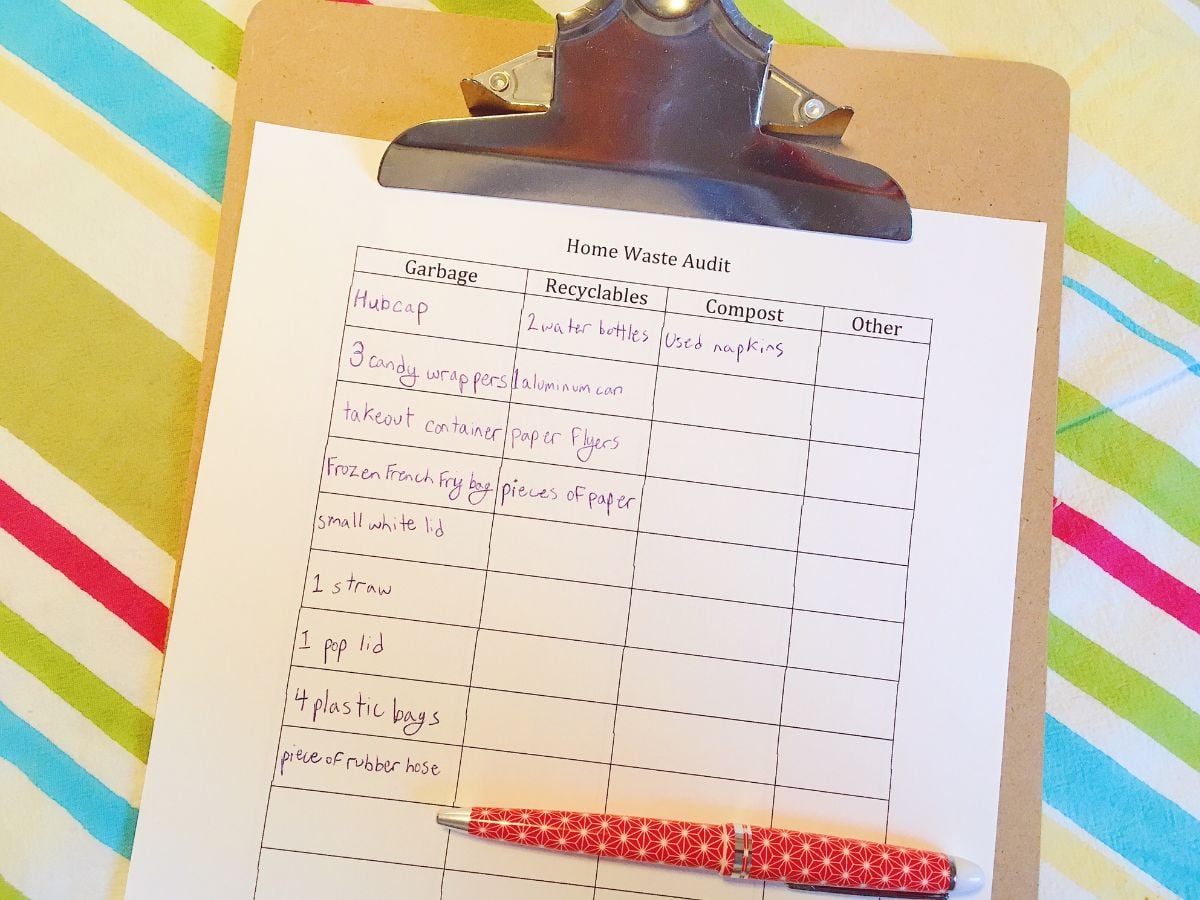 Home Waste Audit
Garbage Recyclables Compost Other
Hubcap 2 water bottles Used napkins
3 candy wrappers 1 aluminum can
takeout container paper Flyers
Frozen French Fry bag pieces of paper
small white lid
1 straw
1 pop lid
4 plastic bags
piece of rubber hose